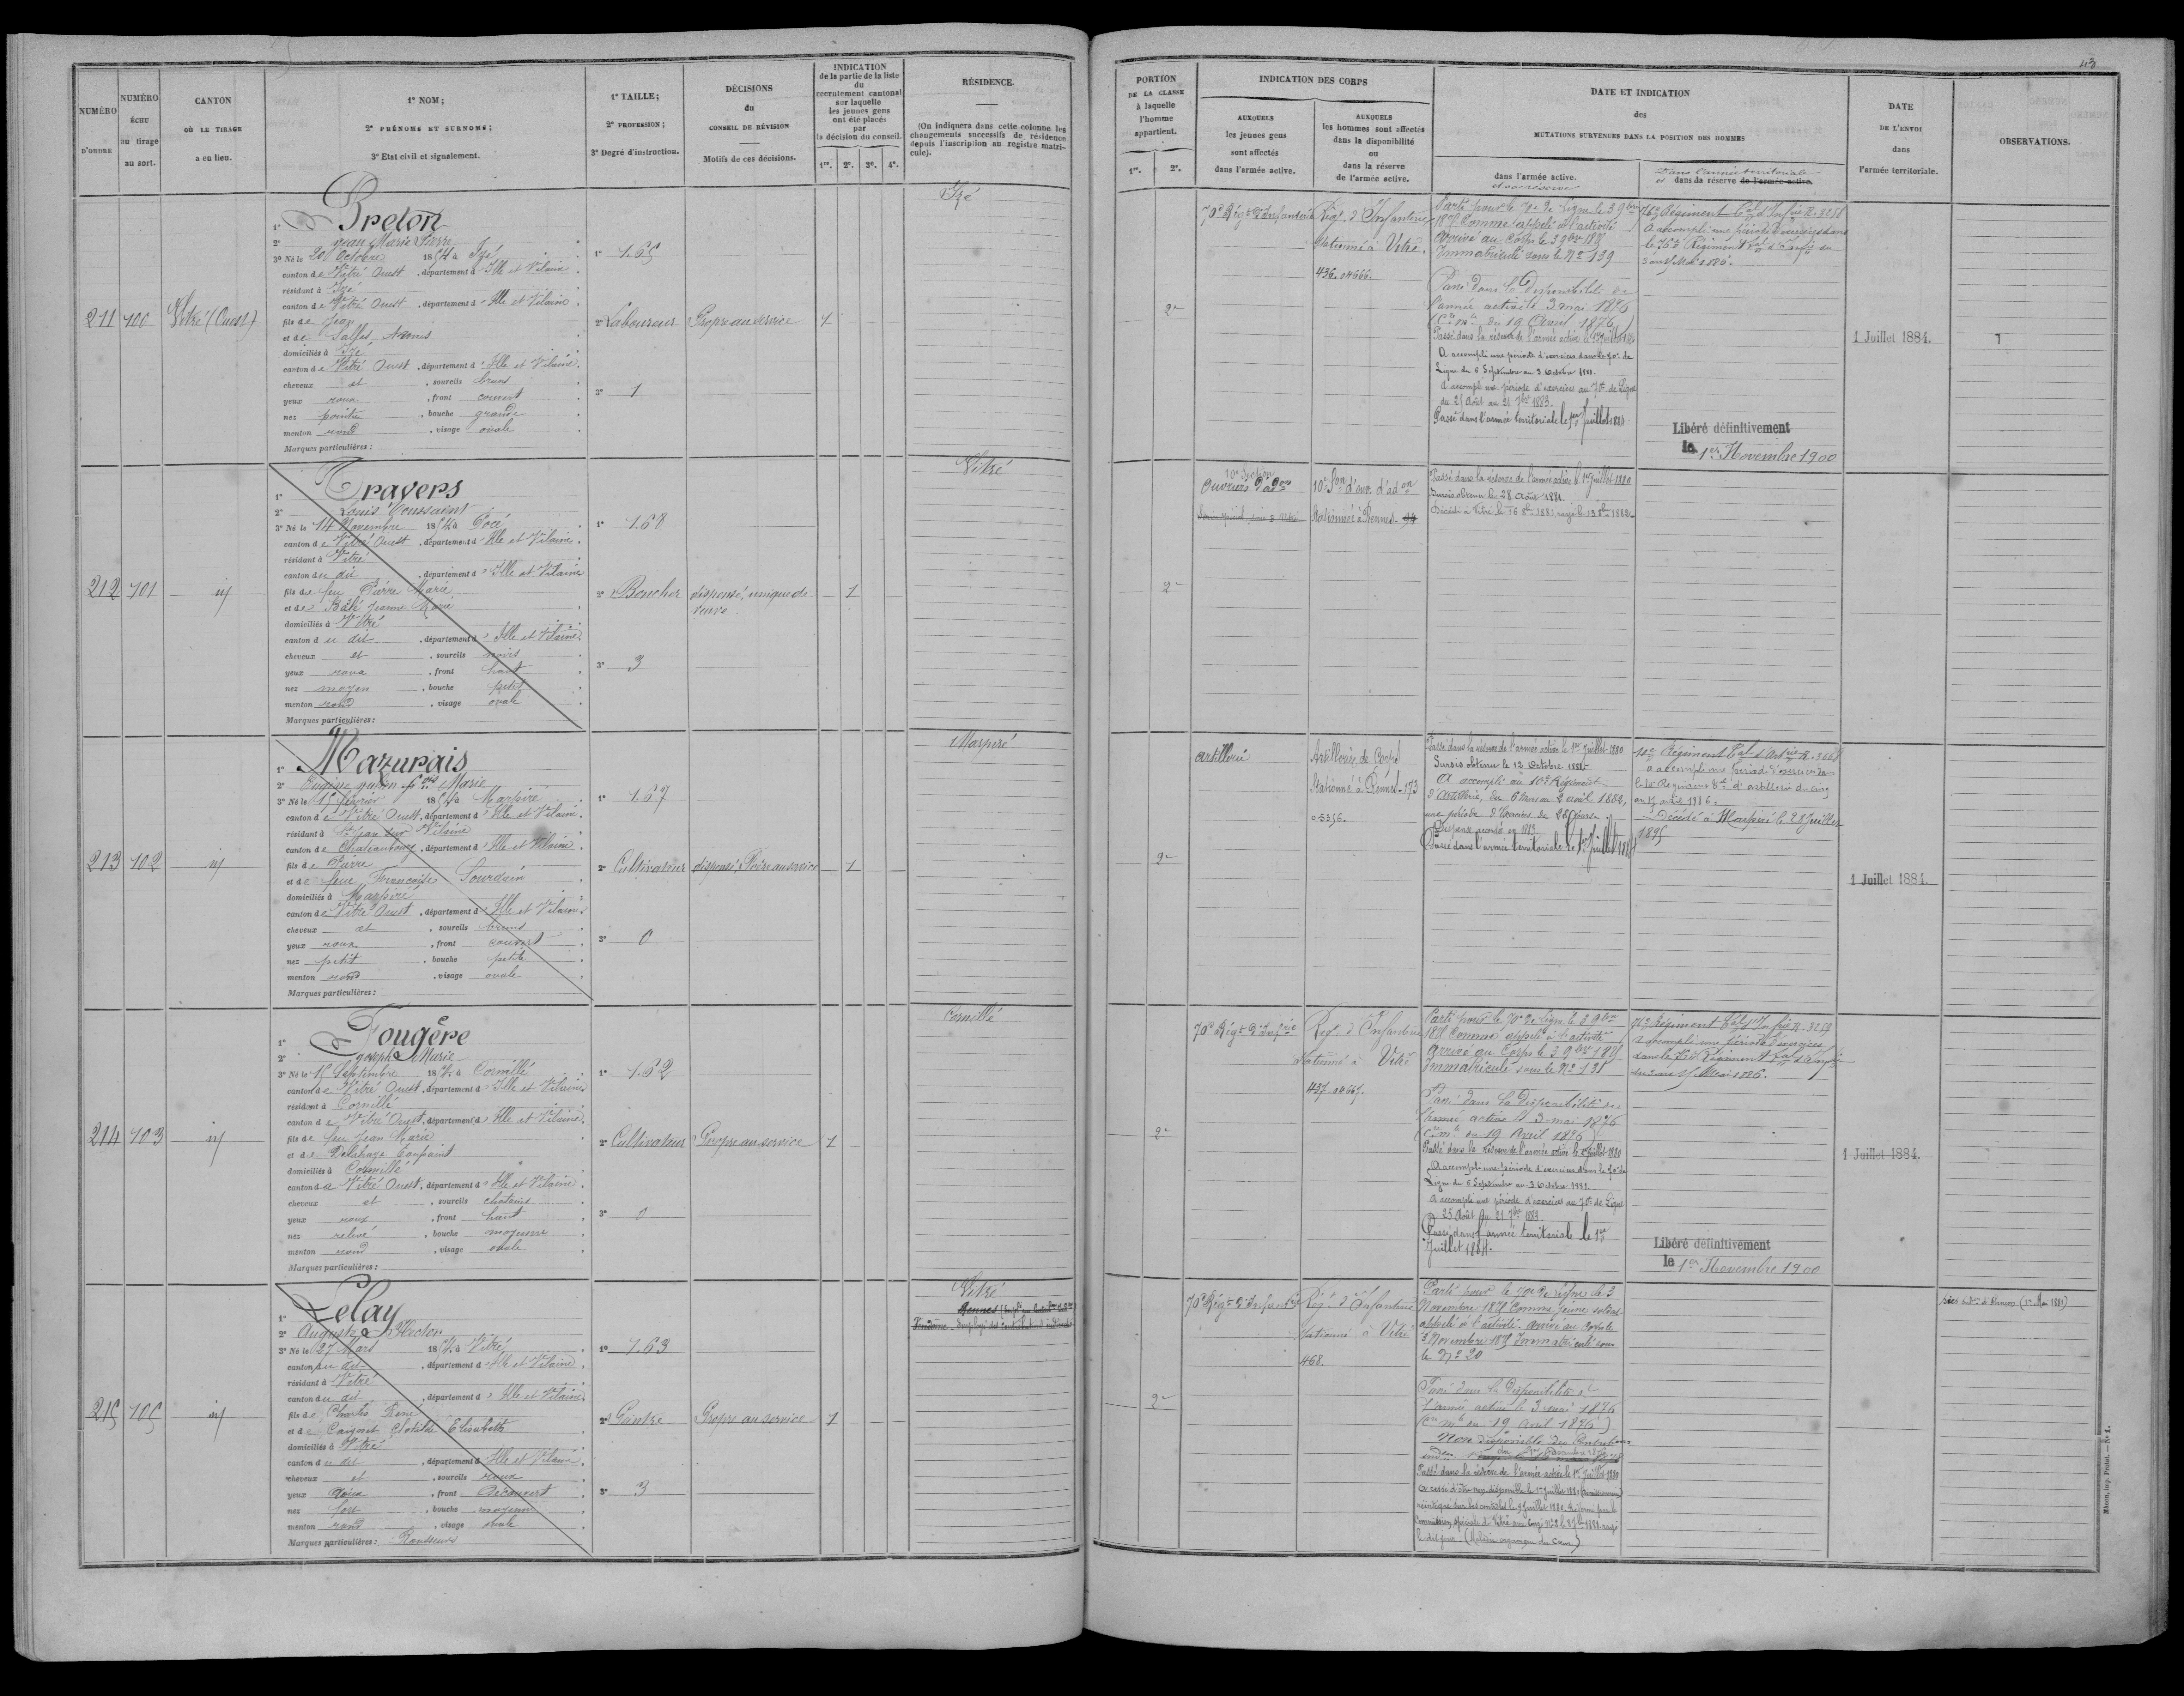 43
NUMÉRO D'ORDRE
NUMÉRO ÉCHU au tirage au sort.
CANTON OÙ LE TIRAGE a eu lieu.
1° NOM;
2° PRÉNOMS ET SURNOMS;
3° Etat civil et signalement.
1° TAILLE;
2° PROFESSION;
3° Degré d'instruction.
DÉCISIONS du CONSEIL DE RÉVISION
Motifs de ces décisions.
INDICATION de la partie de la liste du recrutement cantonal sur laquelle les jeunes gens ont été placés par la décision du conseil.
1re. 2e. 3e. 4e.
RÉSIDENCE.
(On indiquera dans cette colonne les changements successifs de résidence depuis l'inscription au registre matricule).
PORTION DE LA CLASSE à laquelle l'homme appartient.
1re. 2e.
INDICATION DES CORPS
AUXQUELS les jeunes gens sont affectés dans l'armée active.
AUXQUELS les hommes sont affectés dans la disponibilité ou dans la réserve de l'armée active.
DATE ET INDICATION des MUTATIONS SURVENUES DANS LA POSITION DES HOMMES
dans l'armée active.
et sa réserve
Dans l'armée territoriale
et dans la réserve de l'armée active.
DATE DE L'ENVOI dans l'armée territoriale.
OBSERVATIONS.
211 100 Vitré (Ouest)
1° Breton
2° Jean Marie Pierre
3° Né le 20 Octobre 1854 à Izé
canton de Vitré Ouest, département d'Ille et Vilaine.
résidant à Izé
canton de Vitré Ouest, département d'Ille et Vilaine.
fils de Jean
et de
domiciliés à Izé
canton de Vitré Ouest, département d'Ille et Vilaine.
cheveux et, sourcils bruns
yeux roux, front couvert
nez pointu, bouche grande
menton rond, visage ovale
Marques particulières:
1° 1.65
2° Laboureur
3° 1
Propre au service
1
Izé
2e
70e Régt d'Infanterie
Régt d'Infanterie
Stationné à Vitré.
436.
Parti pour le 70e de Ligne le 3 9bre
1875 Comme appelé à l'activité
Arrivé au Corps le 3 9bre 1875
Immatriculé sous le No 139
Passé dans la Disponibilité de
l'armée active le 3 mai 1876
(Cre mlle du 19 Avril 1876)
Passé dans la réserve de l'armée active le 1er Juillet 1880
A accompli une période d'exercices dans le 70e de
Ligne du 6 Septembre au 3 Octobre 1881.
A accompli une période d'exercices au 70e de Ligne
du 25 Août au 21 7bre 1883.
Passé dans l'armée territoriale le 1er Juillet 1884
76e Régiment tal d'Infrie R. 3258
A accompli une période d'exercices dans
le 76e Régiment tal d'Infrie du
Libéré définitivement
le 1er Novembre 1900
1 Juillet 1884.
212 101 id
1° Travers
2° Louis Toussaint
3° Né le 14 Novembre 1854 à Pocé
canton de Vitré Ouest, département d'Ille et Vilaine.
résidant à Vitré
canton du dit, département d'Ille et Vilaine
fils de feu Pierre Marie
et de Jeanne Marie
domiciliés à Vitré
canton du dit, département d'Ille et Vilaine.
cheveux et, sourcils noirs
yeux roux, front haut
nez moyen, bouche petite
menton rond, visage ovale
Marques particulières:
1° 1.68
2° Boucher
3° 3
dispensé, unique de
veuve
1
Vitré
2e
10e Section
Ouvriers d'adon
10e Son d'ouv. d'adon
Stationnée à Rennes
Passé dans la réserve de l'armée active le 1er Juillet 1880
Sursis obtenu le 28 Août 1881.
213 102 id
1° Mazurais
2° Eugène fois Marie
3° Né le 15 février 1854 à Marpiré
canton de Vitré Ouest, département d'Ille et Vilaine.
résidant à St Jean sur Vilaine
canton de Chateaubourg, département d'Ille et Vilaine.
fils de Pierre
et de feue Françoise Sourdain
domiciliés à Marpiré
canton de Vitré Ouest, département d'Ille et Vilaine
cheveux et, sourcils bruns
yeux roux, front couvert
nez petit, bouche petite
menton rond, visage ovale
Marques particulières:
1° 1.67
2° Cultivateur
3° 0
dispensé, Frère au service
1
Marpiré
2e
Artillerie
Artillerie de Corps
Stationné à Rennes - 173
Passé dans la réserve de l'armée active le 1er Juillet 1880
Sursis obtenu le 12 Octobre 1881.
A accompli au 10e Régiment
d'Artillerie, du 6 Mars au 2 avril 1882,
une période d'Exercices de 28 jours.
Dispense accordée en 1883
Passé dans l'armée territoriale le 1er Juillet 1884
10e Régiment tal d'Artrie R. 3668
a accompli une période d'exercices dans
le 10e Régiment tal d'artillerie du cinq
au 17 avril 1886.
Décédé à Marpiré le 28 Juillet
1895
1 Juillet 1884.
214 103 id
1° Fougère
2° Joseph Marie
3° Né le 15 Septembre 1854 à Cornillé
canton de Vitré Ouest, département d'Ille et Vilaine
résidant à Cornillé
canton de Vitré Ouest, département d'Ille et Vilaine.
fils de feu Jean Marie
et de Delahaye
domiciliés à Cornillé
canton de Vitré Ouest, département d'Ille et Vilaine.
cheveux et, sourcils chatains
yeux roux, front haut
nez relevé, bouche moyenne
menton rond, visage ovale
Marques particulières:
1° 1.62
2° Cultivateur
3° 0
Propre au service
1
Cornillé
2e
70e Régt d'Infrie
Régt d'Infanterie
Stationné à Vitré
437.
Parti pour le 70e de Ligne le 3 9bre
1875 Comme appelé à l'activité
Arrivé au Corps le 3 9bre 1875
Immatriculé sous le No 131
Passé dans la Disponibilité de
l'Armée active le 3 mai 1876
(Cre mlle du 19 Avril 1876)
Passé dans la réserve de l'armée active le 1er Juillet 1880
A accompli une période d'exercices dans le 70e de
Ligne du 6 Septembre au 3 Octobre 1881.
A accompli une période d'exercices au 70e de Ligne
du 25 Août au 21 7bre 1883.
Passé dans l'armée territoriale le 1er
Juillet 1884.
76e Régiment tal d'Infrie R. 3259
A accompli une période d'exercices
dans le 76e Régiment tal d'Infrie
Libéré définitivement
le 1er Novembre 1900
1 Juillet 1884.
215 105 id
1° Lelay
2° Auguste Hector
3° Né le 27 Mars 1854 à Vitré
canton du dit, département d'Ille et Vilaine.
résidant à Vitré
canton du dit, département d'Ille et Vilaine.
fils de Charles René
et de Clotilde Elisabeth
domiciliés à Vitré
canton du dit, département d'Ille et Vilaine.
cheveux et, sourcils roux
yeux roux, front découvert
nez fort, bouche moyenne
menton rond, visage ovale
Marques particulières: Rousseurs
1° 1.63
2° Peintre
3° 3
Propre au service
1
Vitré
Rennes
Vendôme - Employé des Contributions indirectes
2e
70e Régt d'Infanterie
Régt d'Infanterie
Stationné à Vitré
468.
Parti pour le 70e de ligne le 3
Novembre 1875 Comme jeune soldat
appelé à l'activité. arrivé au Corps le
3 Novembre 1875 Immatriculé sous
le No 20
Passé dans la Disponibilité de
l'armée active le 3 mai 1876
(Cre mlle du 19 Avril 1876)
Non disponible des Contributions
Passé dans la réserve de l'armée active le 1er Juillet 1880
A cessé d'être non disponible le 1er Juillet 1880
réintégré sur les contrôles le 9 Juillet 1880. Réformé par la
Commission spéciale de Vitré
le dit jour. (Maladie organique du Cœur)
Mâcon, imp. Protat. — No 1.